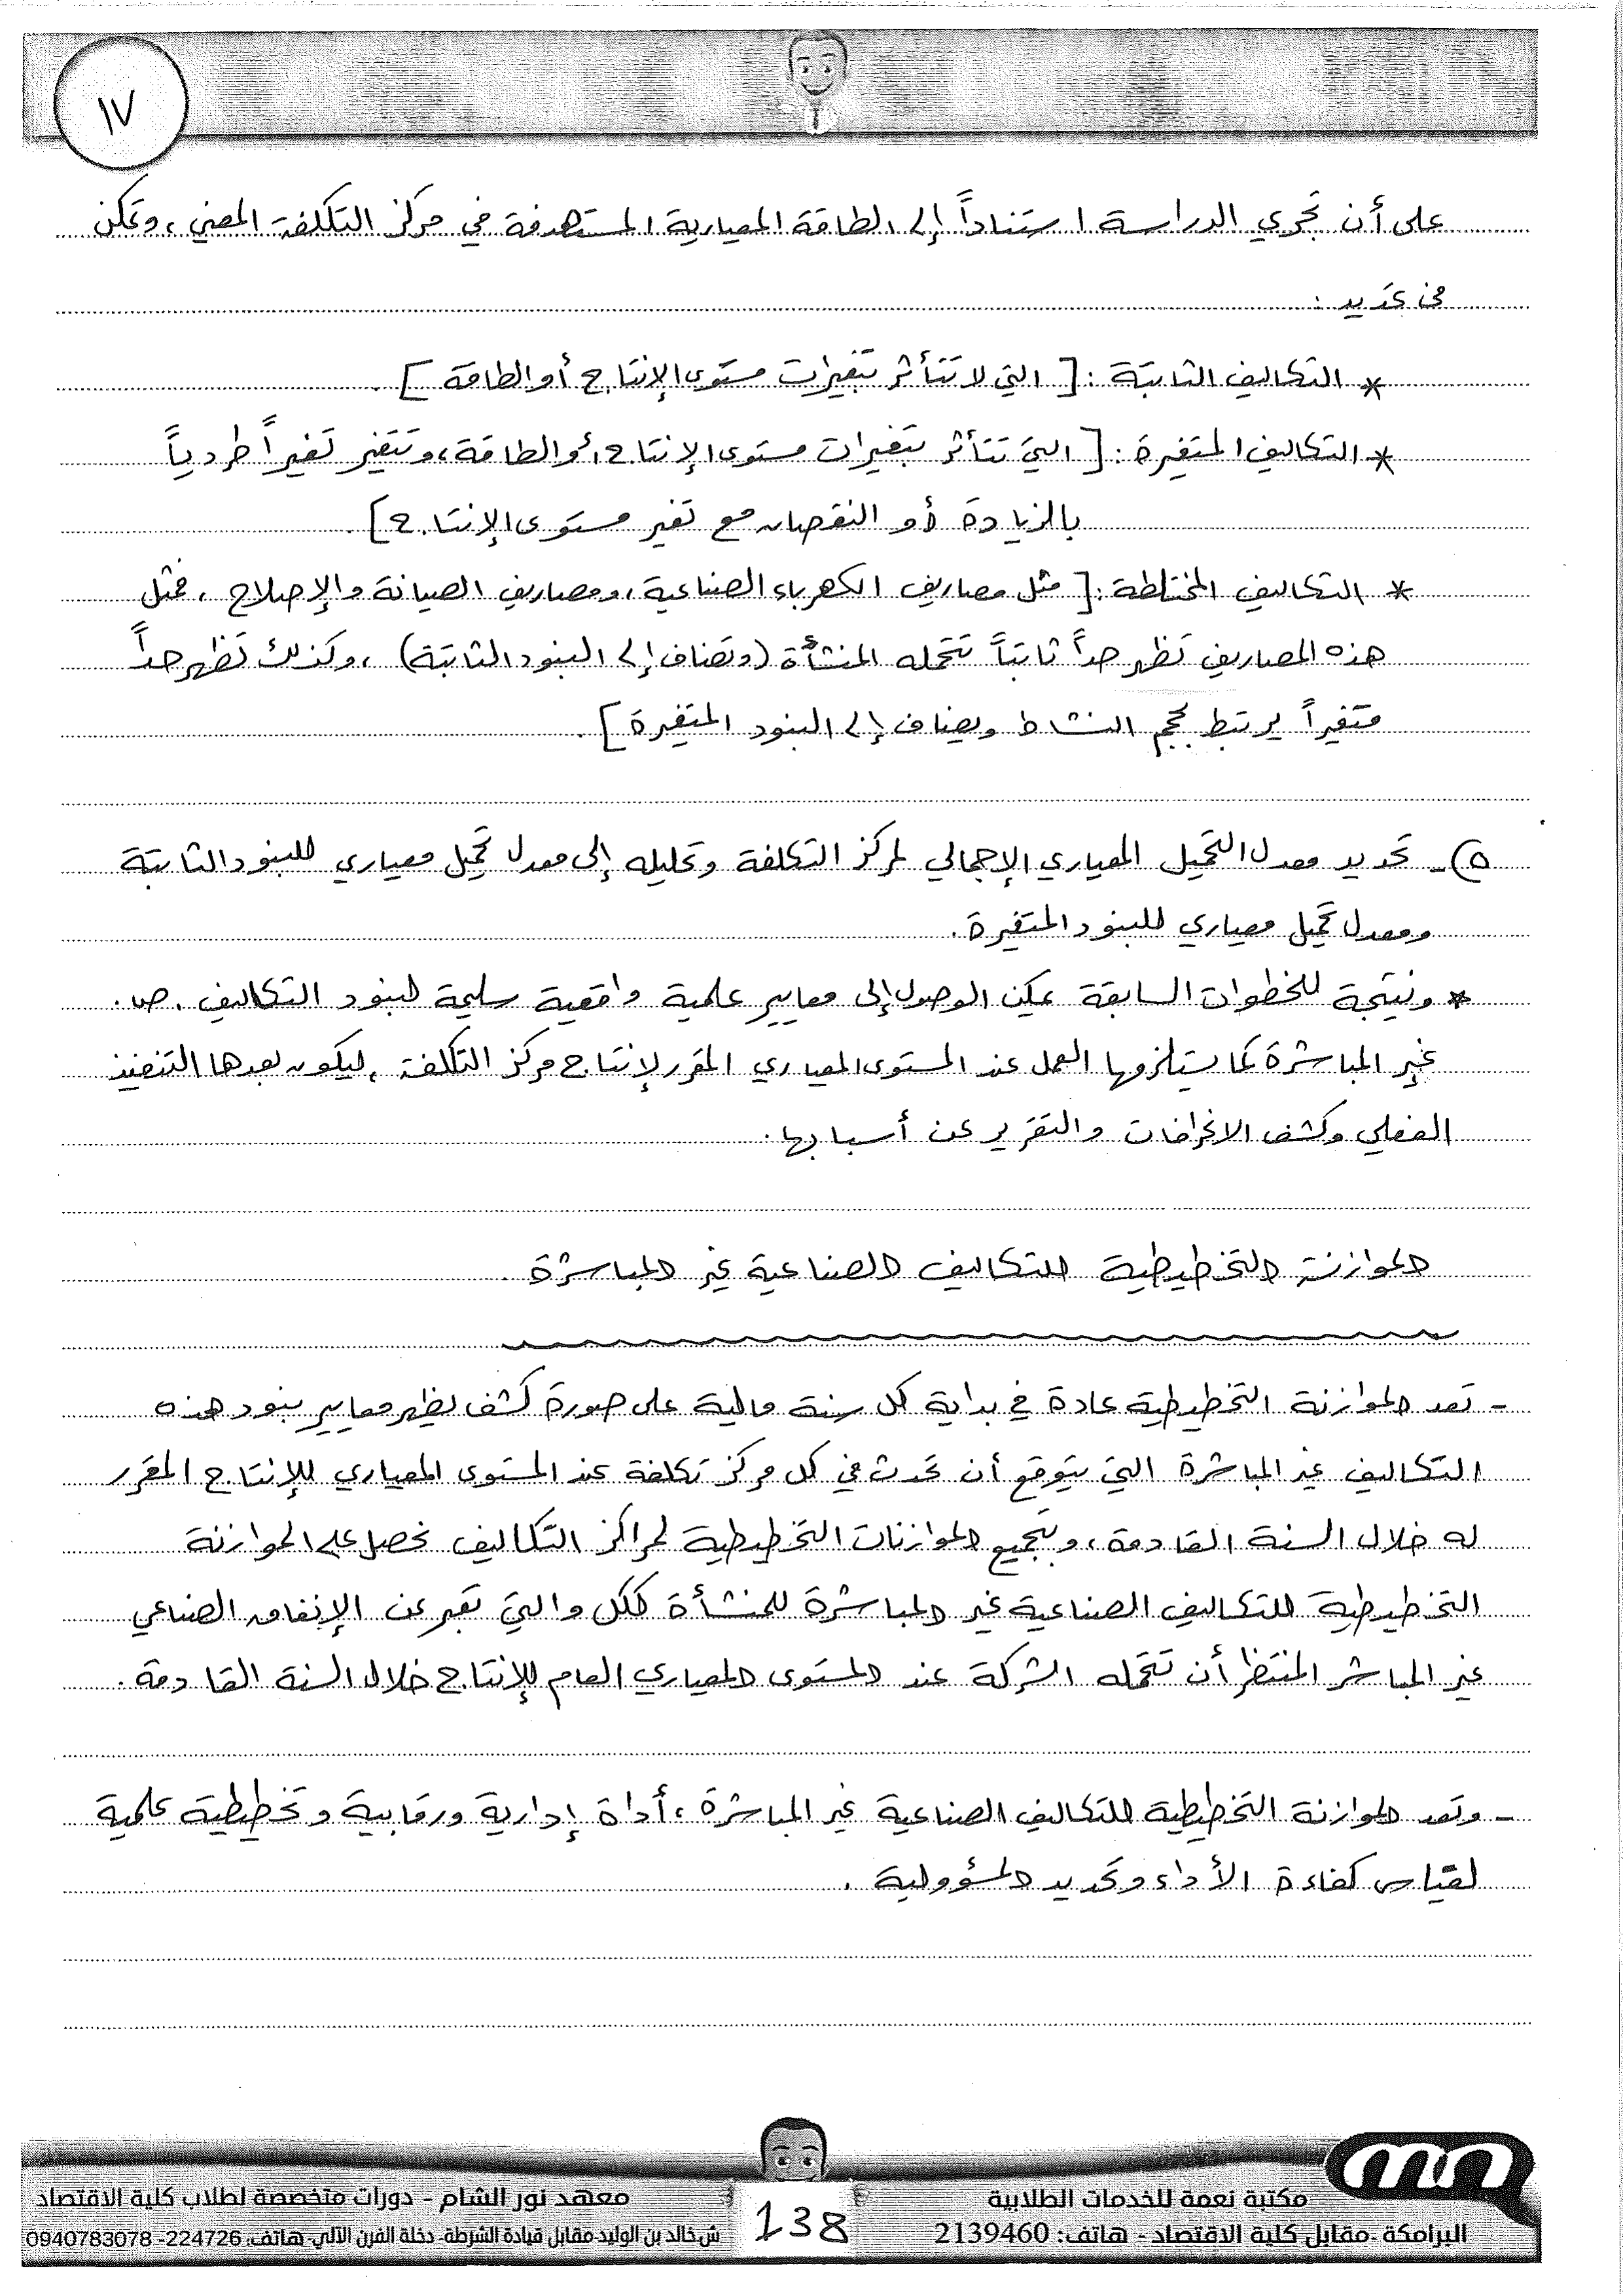 ١٧
على أن تجري الدراسة استناداً إلى الطاقة المعيارية المستهدفة في مركز التكلفة المعني، وتمكن
من تحديد :
* التكاليف الثابتة : [ التي لا تتأثر بتغيرات مستوى الإنتاج أو الطاقة ] .
* التكاليف المتغيرة : [ التي تتأثر بتغيرات مستوى الإنتاج أو الطاقة، وتتغير تغيراً طردياً
بالزيادة أو النقصان مع تغير مستوى الإنتاج ] .
* التكاليف المختلطة : [ مثل مصاريف الكهرباء الصناعية، ومصاريف الصيانة والإصلاح ، فمثل
هذه المصاريف تظهر حداً ثابتاً تتحمله المنشأة (وتضاف إلى البنود الثابتة) ، وكذلك تظهر حداً
متغيراً يرتبط بحجم النشاط ويضاف إلى البنود المتغيرة ] .
٥)- تحديد معدل التحميل المعياري الإجمالي لمركز التكلفة وتحليله إلى معدل تحميل معياري للبنود الثابتة
ومعدل تحميل معياري للبنود المتغيرة .
* ونتيجة للخطوات السابقة يمكن الوصول إلى معايير علمية واقعية سليمة لبنود التكاليف . ص .
غير المباشرة كما يستلزمها العمل عند المستوى المعياري المقرر لإنتاج مركز التكلفة ، ليكون بعدها التنفيذ
الفعلي وكشف الانحرافات والتقرير عن أسبابها .
الموازنة التخطيطية للتكاليف الصناعية غير المباشرة .
- تعد الموازنة التخطيطية عادة في بداية كل سنة مالية على صورة كشف يظهر معايير بنود هذه
التكاليف غير المباشرة التي يتوقع أن تحدث في كل مركز تكلفة عند المستوى المعياري للإنتاج المقرر
له خلال السنة القادمة ، وبتجميع الموازنات التخطيطية لمراكز التكاليف نحصل على الموازنة
التخطيطية للتكاليف الصناعية غير المباشرة للمنشأة ككل والتي تعبر عن الإنفاق الصناعي
غير المباشر المنتظر أن تتحمله الشركة عند المستوى المعياري العام للإنتاج خلال السنة القادمة .
- وتعد الموازنة التخطيطية للتكاليف الصناعية غير المباشرة ، أداة إدارية ورقابية وتخطيطية علمية
لقياس كفاءة الأداء وتحديد المسؤولية .
مكتبة نعمة للخدمات الطلابية
البرامكة -مقابل كلية الاقتصاد - هاتف: 2139460
138
معهد نور الشام - دورات متخصصة لطلاب كلية الاقتصاد
ش.خالد بن الوليد-مقابل قيادة الشرطة- دخلة الفرن الآلي-هاتف: 224726- 0940783078